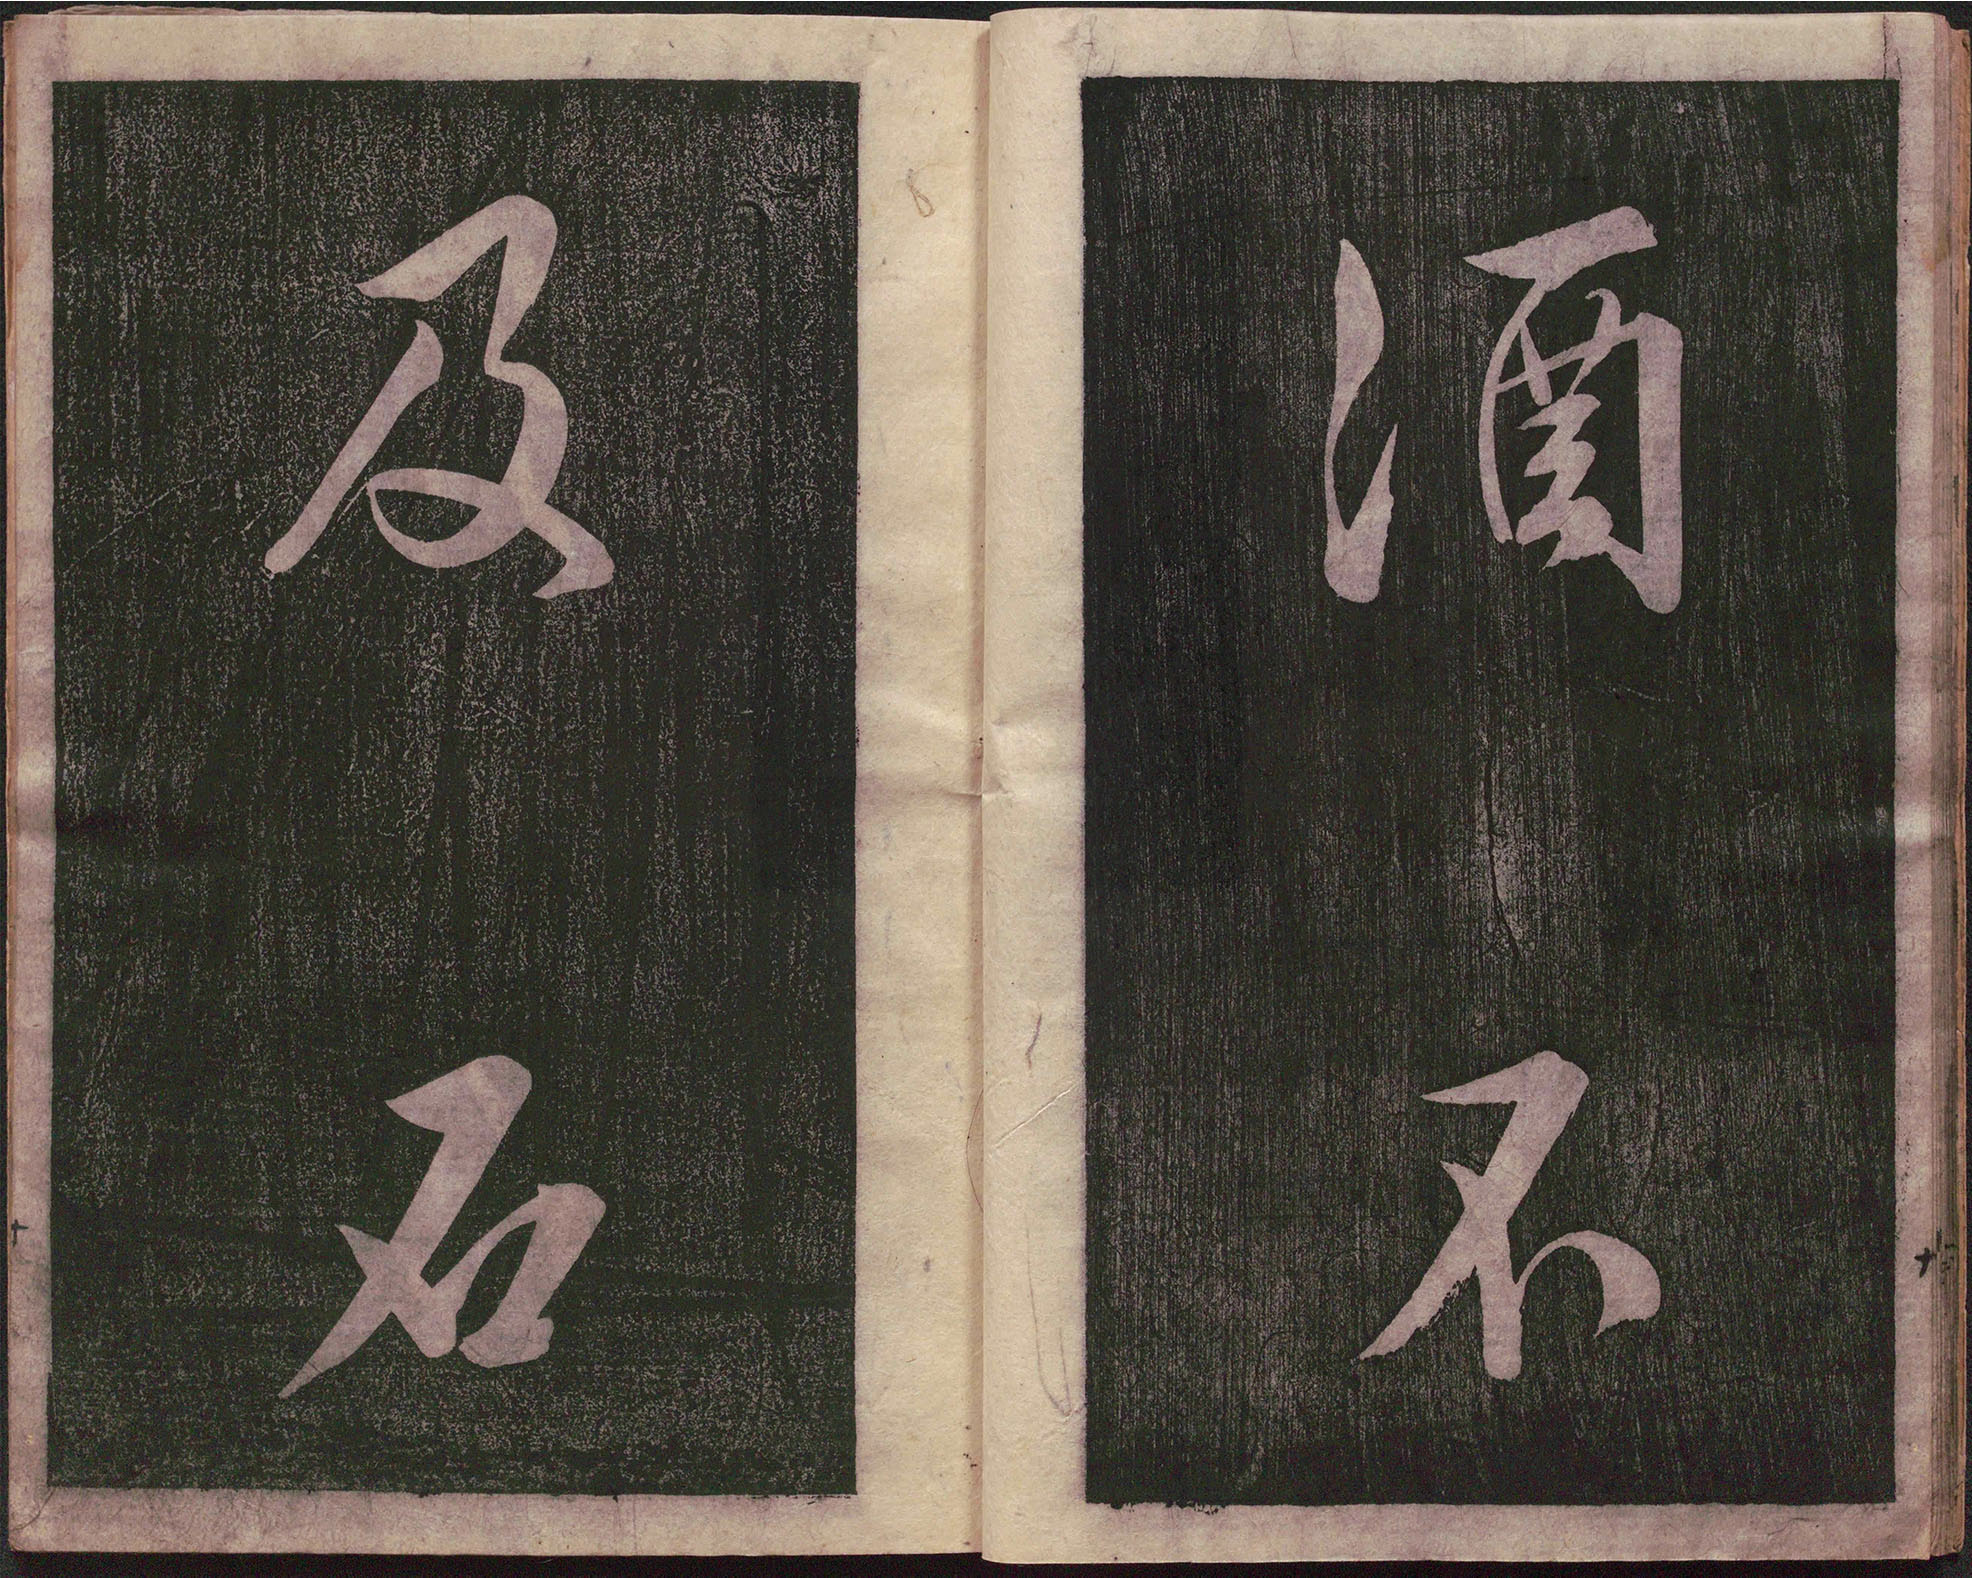 酒不
及石